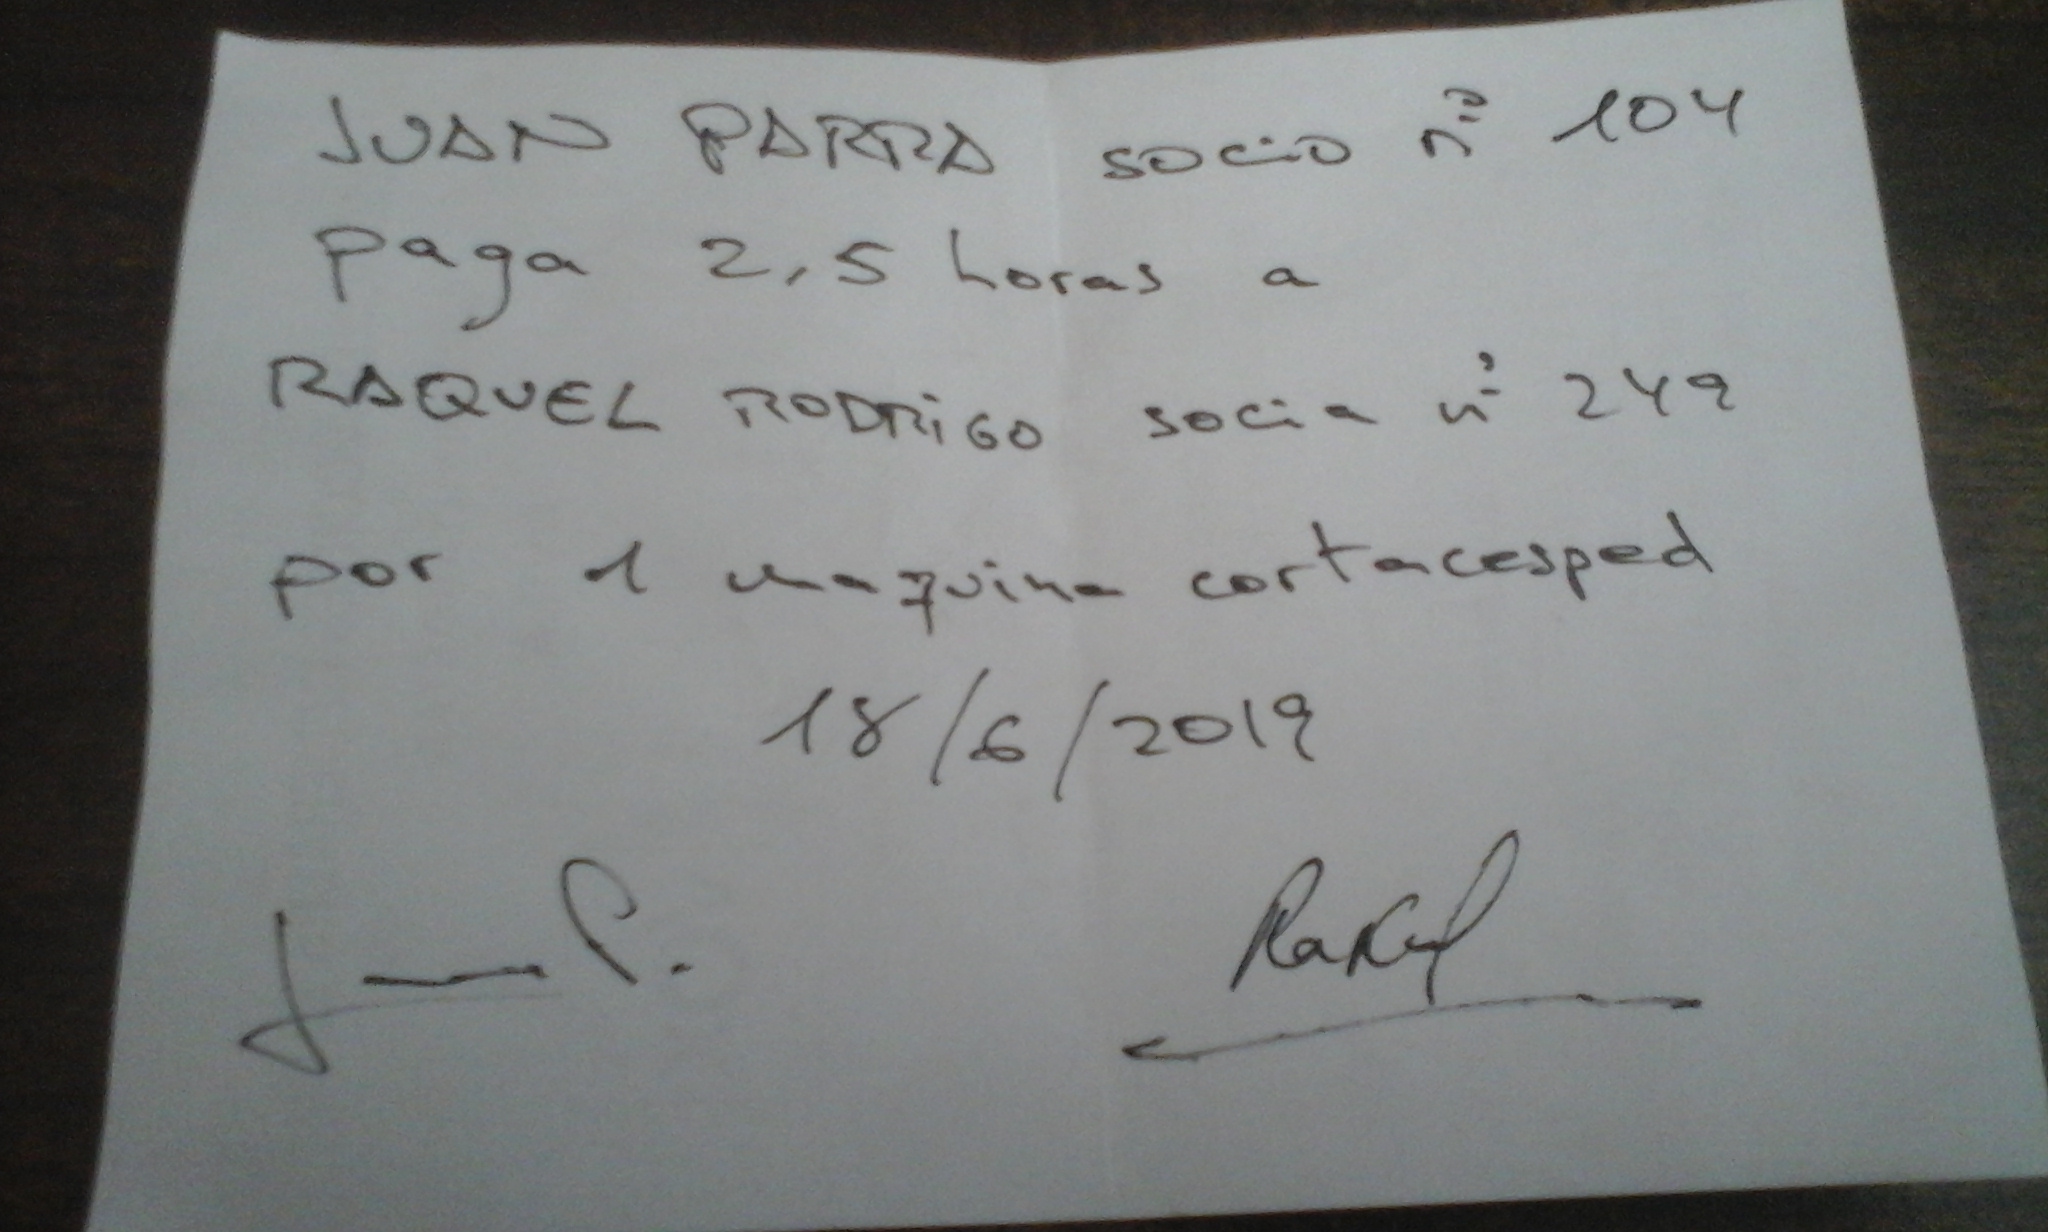 JUAN PARRA socio nº 104
paga 2,5 horas a
RAQUEL RODRiGO socia nº 249
por 1 maquina cortacesped
18/6/2019
Juan P. Rakel